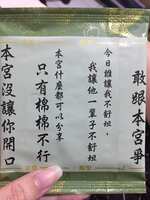 敢跟本宮爭
今日誰讓我不舒坦
我讓他一輩子不舒坦
本宮什麼都可以分享
只有棉棉不行
本宮沒讓你開口